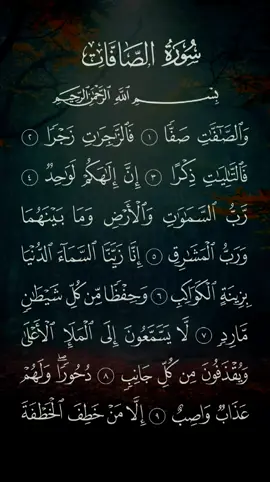 سُورَةُ الصَّافَّاتِ
بِسْمِ اللَّهِ الرَّحْمَٰنِ الرَّحِيمِ
وَالصَّٰٓفَّٰتِ صَفًّا ١ فَالزَّٰجِرَٰتِ زَجْرًا ٢
فَالتَّٰلِيَٰتِ ذِكْرًا ٣ إِنَّ إِلَٰهَكُمْ لَوَٰحِدٌ ٤
رَّبُّ السَّمَٰوَٰتِ وَالْأَرْضِ وَمَا بَيْنَهُمَا
وَرَبُّ الْمَشَٰرِقِ ٥ إِنَّا زَيَّنَّا السَّمَآءَ الدُّنْيَا
بِزِينَةٍ الْكَوَاكِبِ ٦ وَحِفْظًا مِّن كُلِّ شَيْطَٰنٍ
مَّارِدٍ ٧ لَّا يَسَّمَّعُونَ إِلَى الْمَلَإِ الْأَعْلَىٰ
وَيُقْذَفُونَ مِن كُلِّ جَانِبٍ ٨ دُحُورًا ۖ وَلَهُمْ
عَذَابٌ وَاصِبٌ ٩ إِلَّا مَنْ خَطِفَ الْخَطْفَةَ